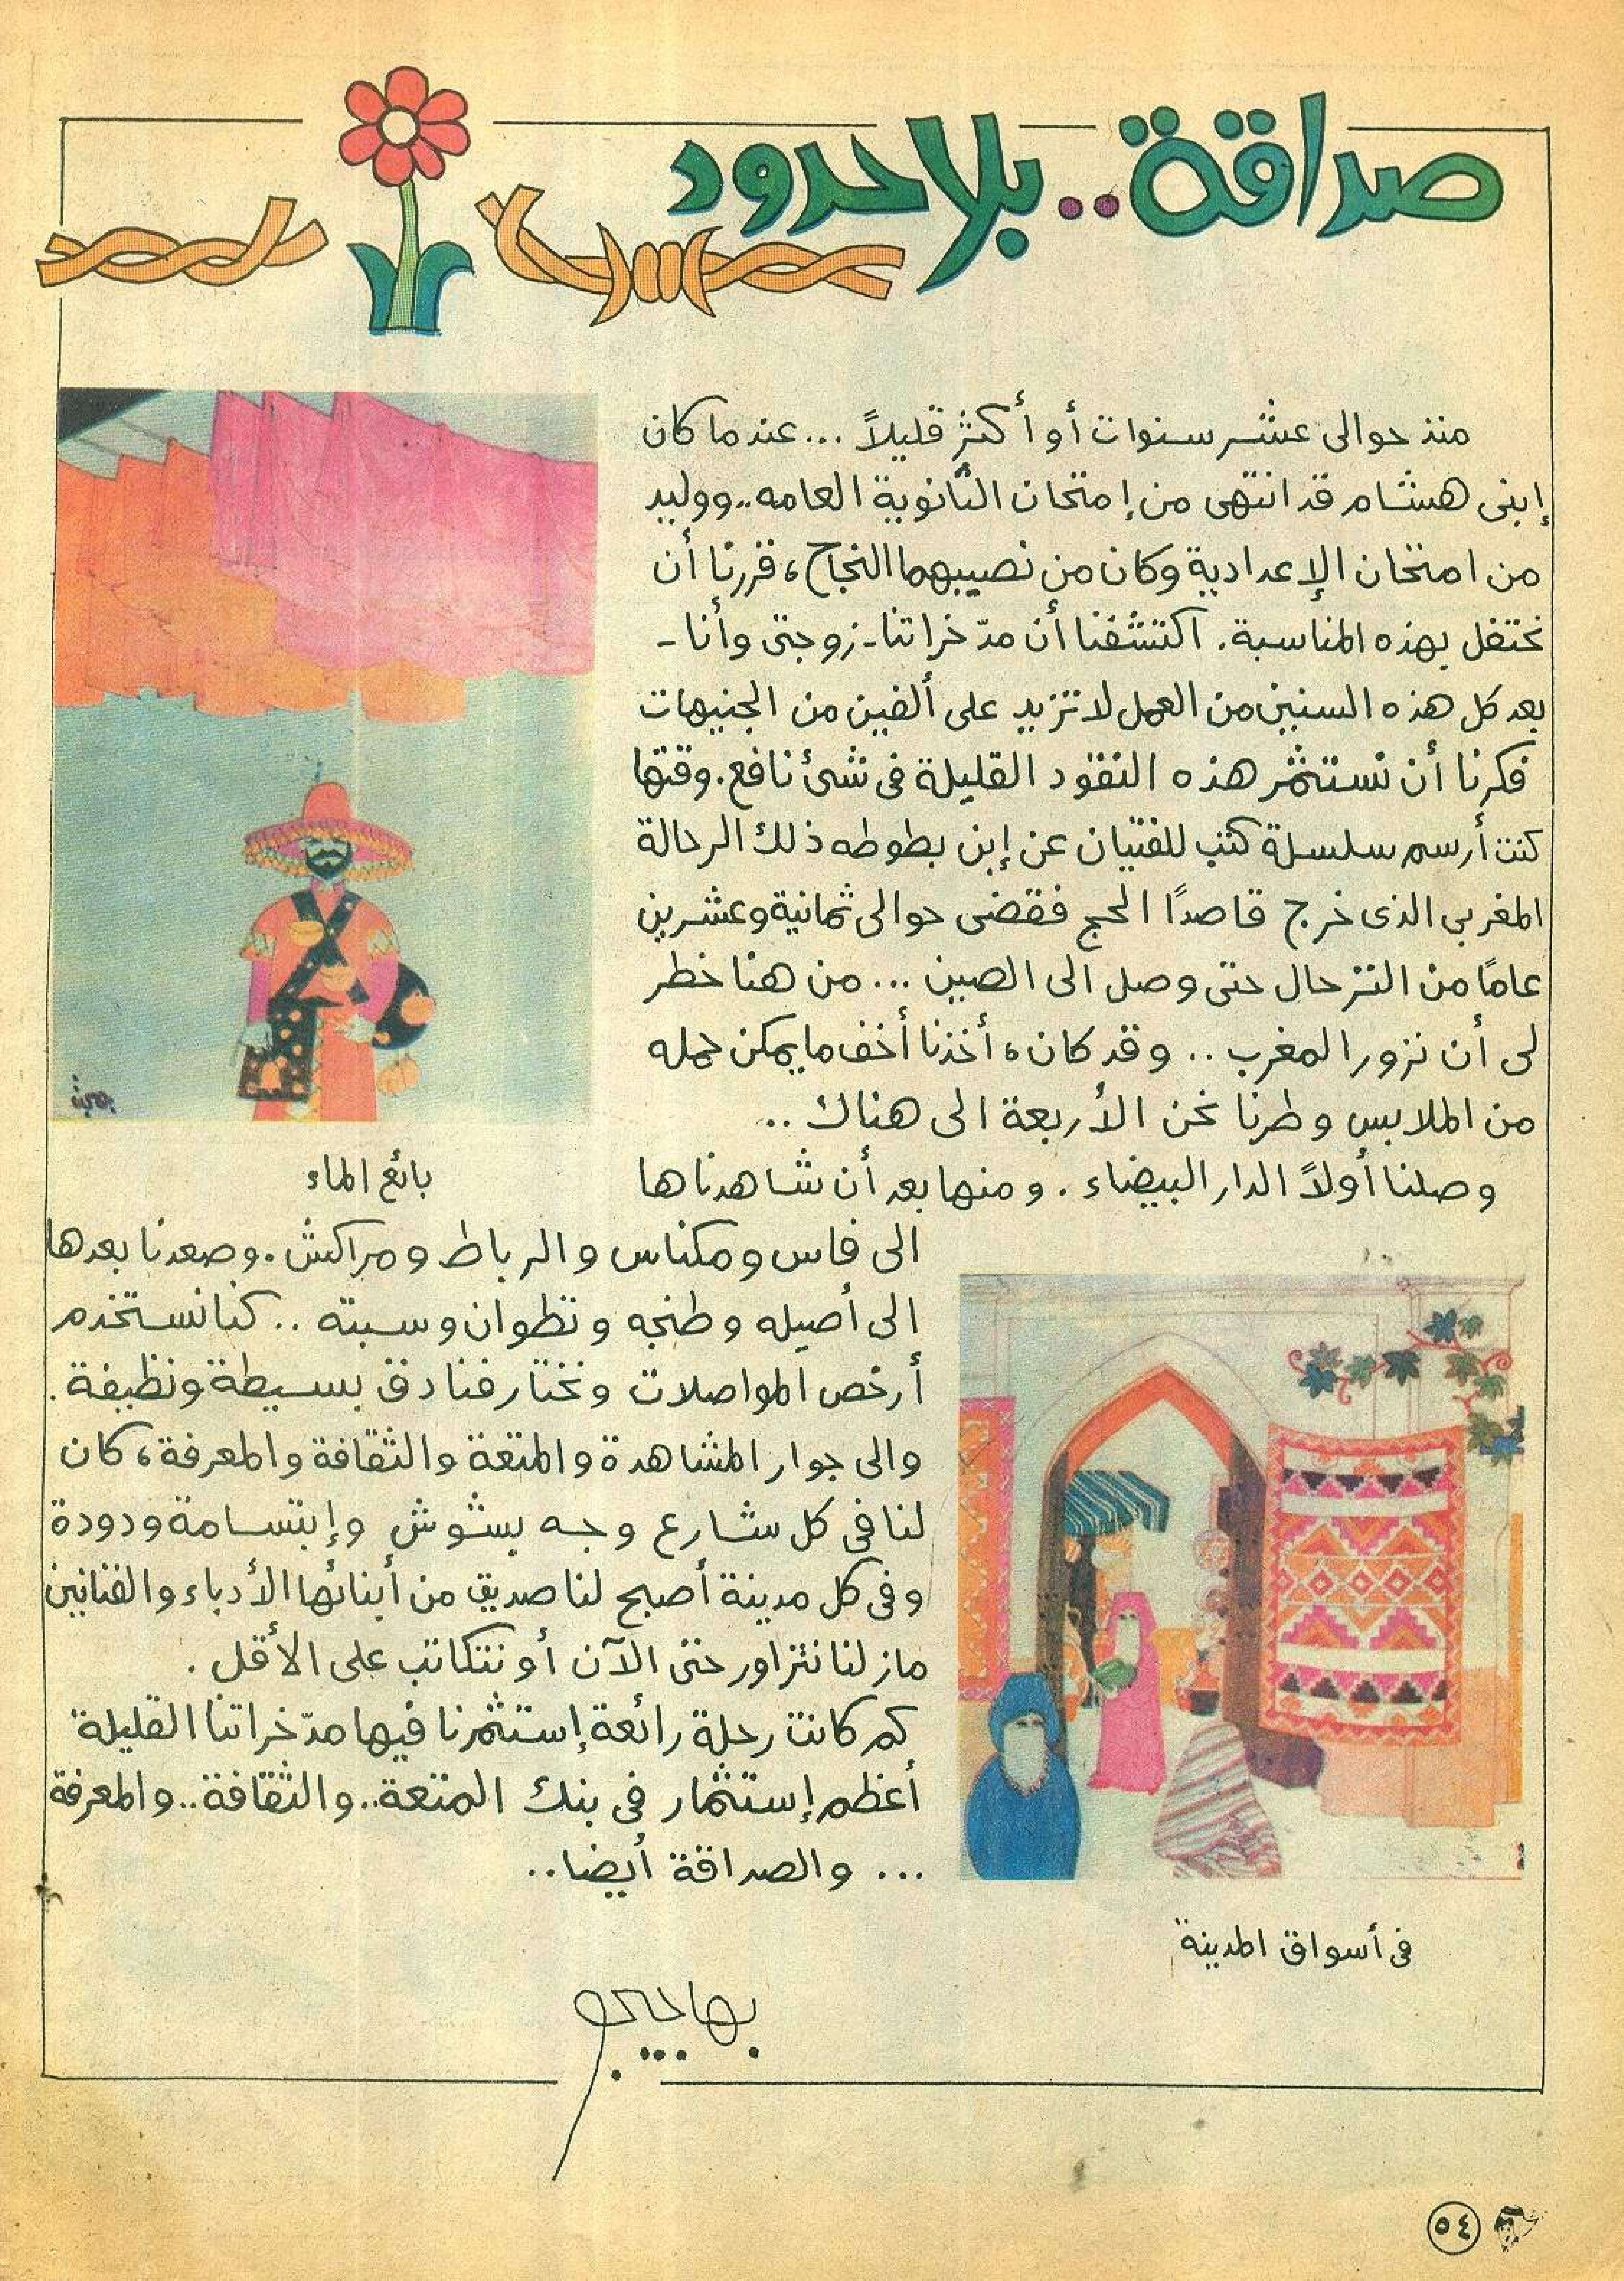 صداقة.. بلا حدود
منذ حوالى عشر سنوات أو أكثر قليلاً ... عندما كان
إبنى هشام قد انتهى من إمتحان الثانوية العامه.. ووليد
من امتحان الإعدادية وكان من نصيبهما النجاح، قررنا أن
نحتفل بهذه المناسبة. اكتشفنا أن مدّخراتنا - زوجتى وأنا -
بعد كل هذه السنين من العمل لا تزيد على ألفين من الجنيهات
فكرنا أن نستثمر هذه النقود القليلة فى شئ نافع. وقتها
كنت أرسم سلسلة كتب للفتيان عن إبن بطوطه ذلك الرحالة
المغربى الذى خرج قاصدًا الحج فقضى حوالى ثمانية وعشرين
عامًا من الترحال حتى وصل الى الصين ... من هنا خطر
لى أن نزور المغرب .. وقد كان، أخذنا أخف ما يمكن حمله
من الملابس وطرنا نحن الأربعة الى هناك ..
وصلنا أولاً الدار البيضاء . ومنها بعد أن شاهدناها
بائع الماء
الى فاس ومكناس والرباط ومراكش. وصعدنا بعدها
الى أصيله وطنجه وتطوان وسبته .. كنا نستخدم
أرخص المواصلات ونختار فنادق بسيطة ونظيفة .
والى جوار المشاهدة والمتعة والثقافة والمعرفة، كان
لنا فى كل شارع وجه بشوش وإبتسامة ودودة
وفى كل مدينة أصبح لنا صديق من أبنائها الأدباء والفنانين
مازلنا نتزاور حتى الآن أو نتكاتب على الأقل .
كم كانت رحلة رائعة إستثمرنا فيها مدّخراتنا القليلة
أعظم إستثمار فى بنك المتعة.. والثقافة.. والمعرفة
... والصداقة أيضا..
فى أسواق المدينة
بهاجيجو
٥٤